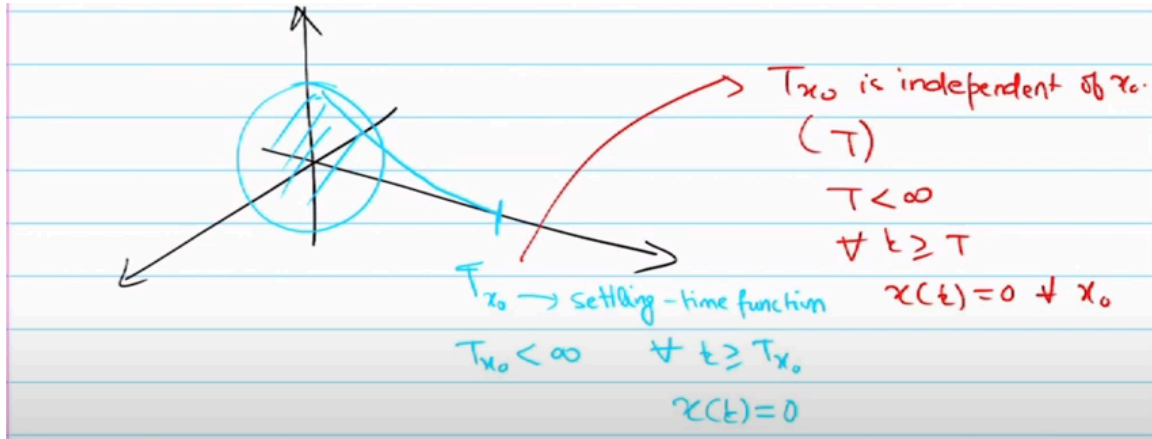 T_{x_0} is independent of x_0.
(T)
T < ∞
∀ t ≥ T
x(t) = 0 ∀ x_0
T_{x_0} → settling-time function
T_{x_0} < ∞ ∀ t ≥ T_{x_0}
x(t) = 0